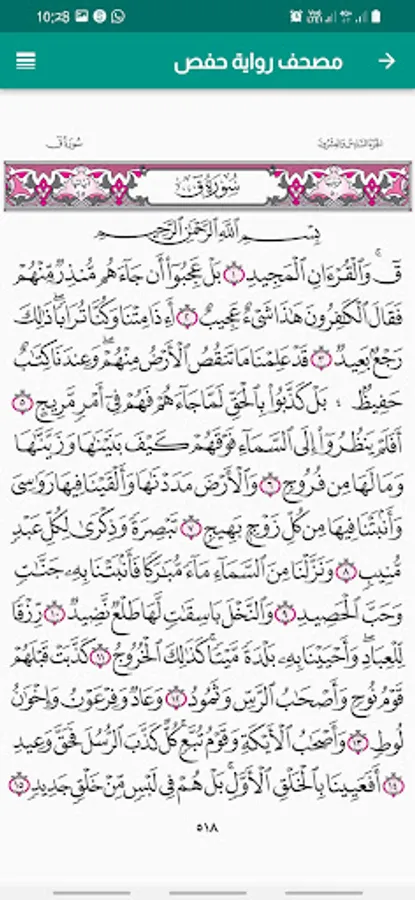 10:28
مصحف رواية حفص
سُورَةُ قٓ
الجُزْءُ السَّادِسُ وَالعِشْرُونَ
سُورَةُ قٓ
بِسْمِ ٱللَّهِ ٱلرَّحْمَٰنِ ٱلرَّحِيمِ
قٓۚ وَٱلْقُرْءَانِ ٱلْمَجِيدِ ١ بَلْ عَجِبُوٓا۟ أَن جَآءَهُم مُّنذِرٌ مِّنْهُمْ
فَقَالَ ٱلْكَٰفِرُونَ هَٰذَا شَىْءٌ عَجِيبٌ ٢ أَءِذَا مِتْنَا وَكُنَّا تُرَابًاۖ ذَٰلِكَ
رَجْعٌۢ بَعِيدٌ ٣ قَدْ عَلِمْنَا مَا تَنقُصُ ٱلْأَرْضُ مِنْهُمْۖ وَعِندَنَا كِتَٰبٌ
حَفِيظٌۢ ٤ بَلْ كَذَّبُوا۟ بِٱلْحَقِّ لَمَّا جَآءَهُمْ فَهُمْ فِىٓ أَمْرٍ مَّرِيجٍ ٥
أَفَلَمْ يَنظُرُوٓا۟ إِلَى ٱلسَّمَآءِ فَوْقَهُمْ كَيْفَ بَنَيْنَٰهَا وَزَيَّنَّٰهَا
وَمَا لَهَا مِن فُرُوجٍ ٦ وَٱلْأَرْضَ مَدَدْنَٰهَا وَأَلْقَيْنَا فِيهَا رَوَٰسِىَ
وَأَنۢبَتْنَا فِيهَا مِن كُلِّ زَوْجٍۭ بَهِيجٍ ٧ تَبْصِرَةً وَذِكْرَىٰ لِكُلِّ عَبْدٍ
مُّنِيبٍ ٨ وَنَزَّلْنَا مِنَ ٱلسَّمَآءِ مَآءً مُّبَٰرَكًا فَأَنۢبَتْنَا بِهِۦ جَنَّٰتٍ
وَحَبَّ ٱلْحَصِيدِ ٩ وَٱلنَّخْلَ بَاسِقَٰتٍ لَّهَا طَلْعٌ نَّضِيدٌ ١٠ رِّزْقًا
لِّلْعِبَادِۖ وَأَحْيَيْنَا بِهِۦ بَلْدَةً مَّيْتًاۚ كَذَٰلِكَ ٱلْخُرُوجُ ١١ كَذَّبَتْ قَبْلَهُمْ
قَوْمُ نُوحٍ وَأَصْحَٰبُ ٱلرَّسِّ وَثَمُودُ ١٢ وَعَادٌ وَفِرْعَوْنُ وَإِخْوَٰنُ
لُوطٍ ١٣ وَأَصْحَٰبُ ٱلْأَيْكَةِ وَقَوْمُ تُبَّعٍۚ كُلٌّ كَذَّبَ ٱلرُّسُلَ فَحَقَّ وَعِيدِ
١٤ أَفَعَيِينَا بِٱلْخَلْقِ ٱلْأَوَّلِۚ بَلْ هُمْ فِى لَبْسٍ مِّنْ خَلْقٍ جَدِيدٍ ١٥
٥١٨